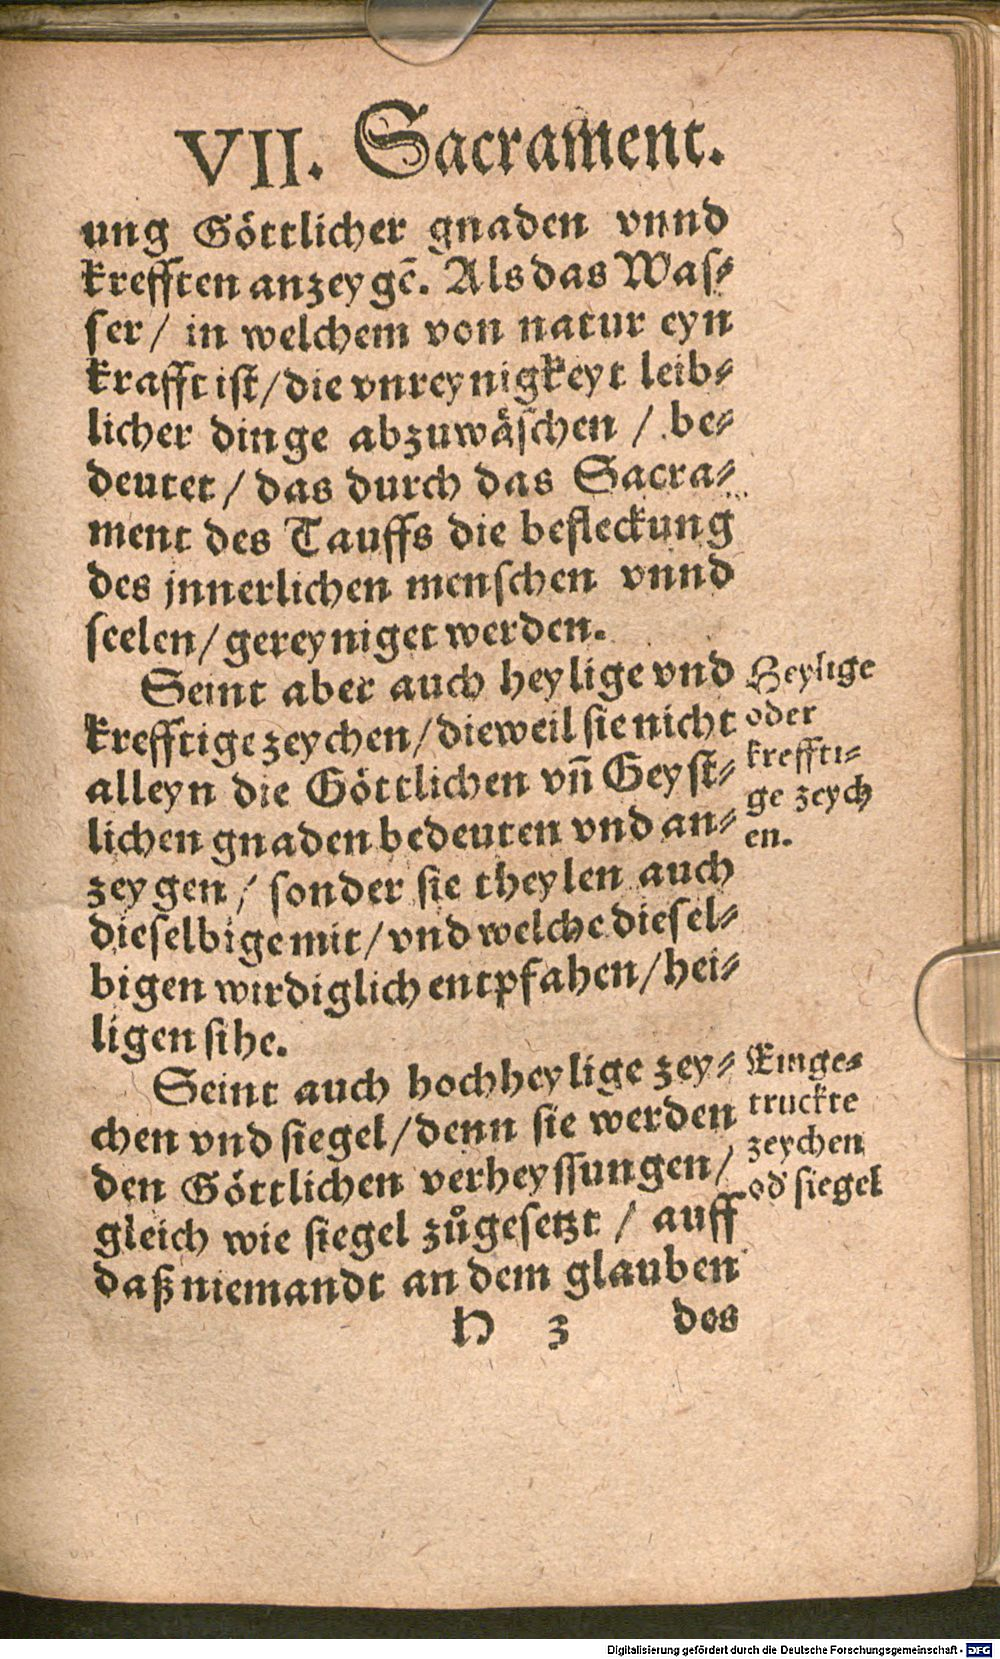 VII. Sacrament.
ung Göttlicher gnaden vnnd
krefften anzeygẽ. Als das Waſ⸗
ſer/ in welchem von natur eyn
krafft iſt/ die vnreynigkeyt leib⸗
licher dinge abzuwäſchen / be⸗
deutet/ das durch das Sacra⸗
ment des Tauffs die befleckung
des jnnerlichen menſchen vnnd
ſeelen/ gereyniget werden.
Seint aber auch heylige vnd
krefftige zeychen/ dieweil ſie nicht
alleyn die Göttlichen vñ Geyſt⸗
lichen gnaden bedeuten vnd an⸗
zeygen/ ſonder ſie theylen auch
dieſelbige mit/ vnd welche dieſel⸗
bigen wirdiglich entpfahen/ hei⸗
ligen ſihe.
Heylige
oder
kreffti⸗
ge zeych
en.
Seint auch hochheylige zey⸗
chen vnd ſiegel/ denn ſie werden
den Göttlichen verheyſſungen/
gleich wie ſiegel zůgeſetzt / auff
daß niemandt an dem glauben
Einge⸗
truckte
zeychen
od' ſiegel
H 3 des
Digitalisierung gefördert durch die Deutsche Forschungsgemeinschaft - DFG